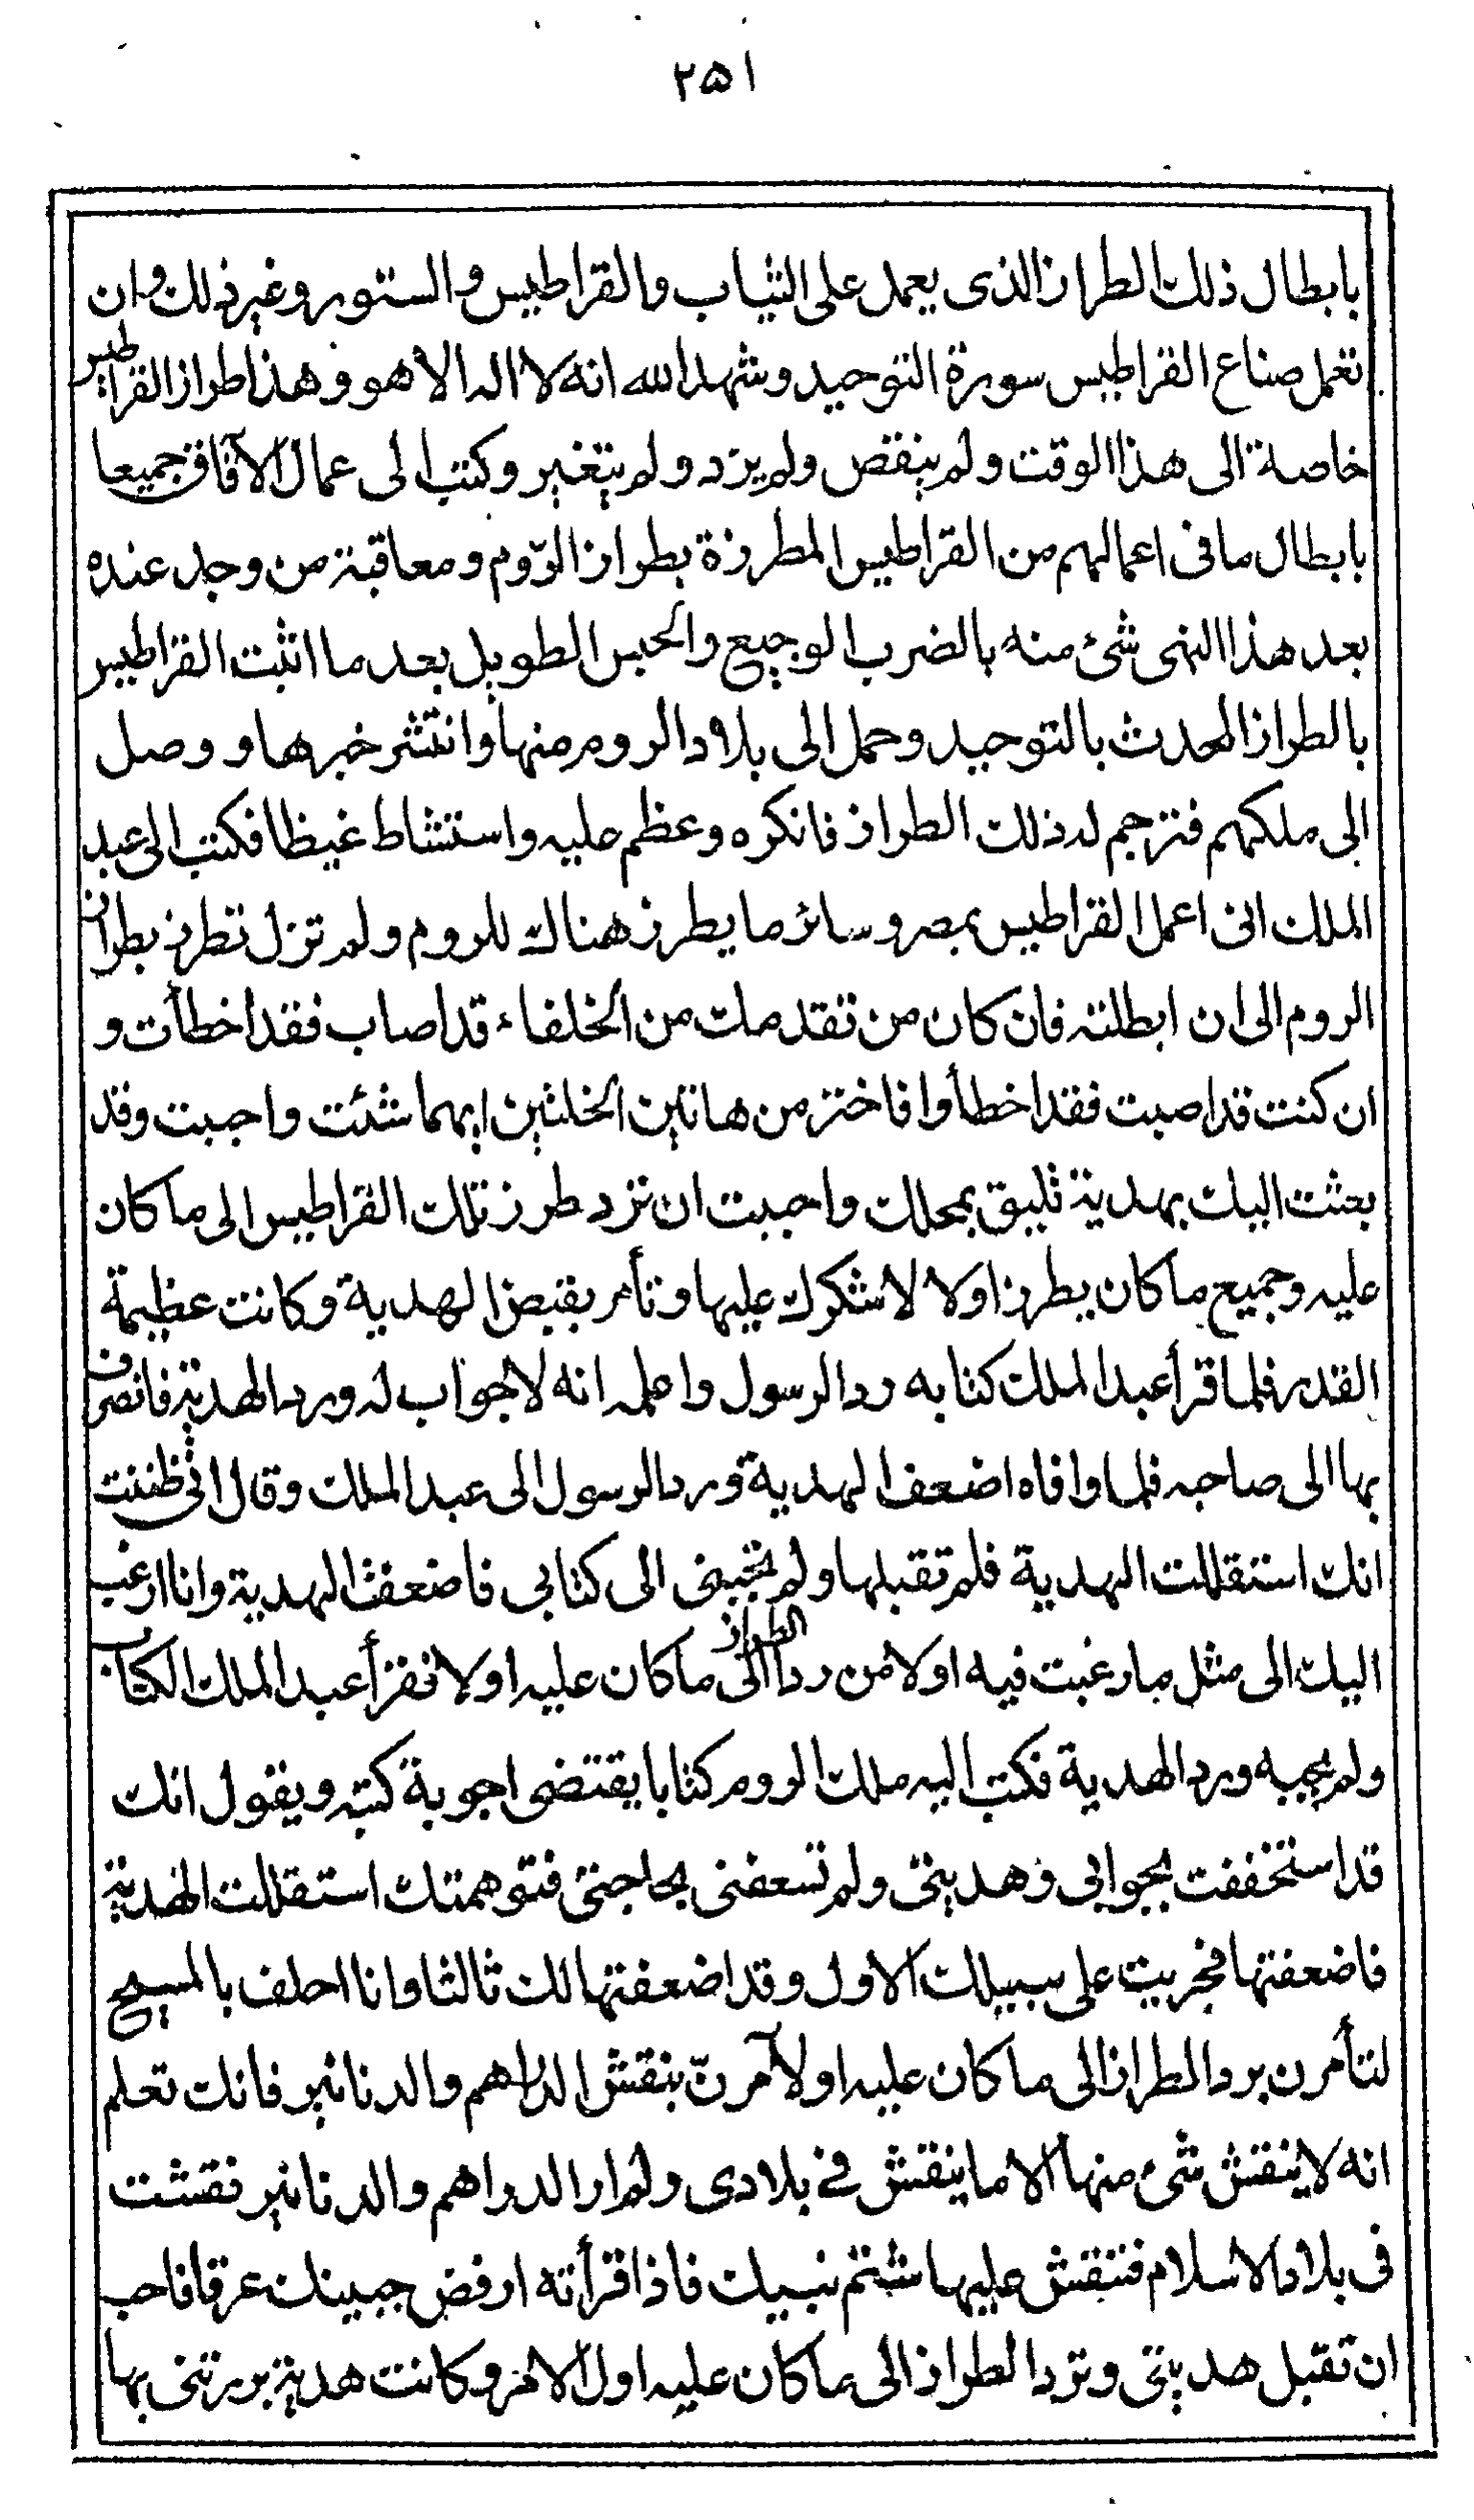 ٢۵١
بابطال ذلك الطراز الذى يعمل على الثياب والقراطيس والستور وغير ذلك وان
تعمل صناع القراطيس سورة التوحيد وشهد الله انه لا اله الا هو وهذا طراز القراطيس
خاصة الى هذا الوقت ولم ينقص ولم يزد ولم يتغير وكتب الى عمال الآفاق جميعا
بابطال ما فى اعمالهم من القراطيس المطرزة بطراز الرّوم ومعاقبة من وجد عنده
بعد هذا النهى شئ منه بالضرب الوجيع والحبس الطويل بعد ما اثبت القراطيس
بالطراز المحدث بالتوحيد وحمل الى بلاد الروم منها وانتشر خبرها و وصل
الى ملكهم فترجم له ذلك الطراز فانكره وعظم عليه واستشاط غيظا فكتب الى عبد
الملك ان اعمل القراطيس بمصر وسائر ما يطرز هناك للروم ولم تزل تطرز بطراز
الروم الى ان ابطلته فان كان من تقدمك من الخلفاء قد اصاب فقد اخطأت و
ان كنت قد اصبت فقد اخطأوا فاختر من هاتين الخلتين ايهما شئت واحببت وقد
بعثت اليك بهدية تليق بمحلك واحببت ان ترد طرز تلك القراطيس الى ما كان
عليه وجميع ما كان يطرز اولا لاشكرك عليها وتأمر بقبض الهدية وكانت عظيمة
القدر فلما قرأ عبد الملك كتابه رد الرسول واعلمه انه لا جواب له ورد الهدية فانصرف
بها الى صاحبه فلما وافاه اضعف الهدية ورد الرسول الى عبد الملك وقال انى ظننت
انك استقللت الهدية فلم تقبلها ولم تجبنى الى كتابى فاضعفت الهدية وانا ارغب
اليك الى مثل ما رغبت فيه اولا من رد الطراز الى ما كان عليه اولا فقرأ عبد الملك الكتاب
ولم يجبه ورد الهدية فكتب اليه ملك الروم كتابا يقتضى اجوبة كتبه ويقول انك
قد استخففت بجوابى وهديتى ولم تسعفنى بحاجتى فتوهمتك استقللت الهدية
فاضعفتها فجريت على سبيلك الاول وقد اضعفتها لك ثالثا وانا احلف بالمسيح
لتأمرن برد الطراز الى ما كان عليه او لآمرنّ بنقش الدراهم والدنانير فانك تعلم
انه لا ينقش شئ منها الا ما ينقش فى بلادى ولم ار الدراهم والدنانير نقشت
فى بلاد الاسلام فتنقش عليها شتم نبيك فاذا قرأته ارفض جبينك عرقا فاحب
ان تقبل هديتى وترد الطراز الى ما كان عليه اول الامر وكانت هدية بررتنى بها